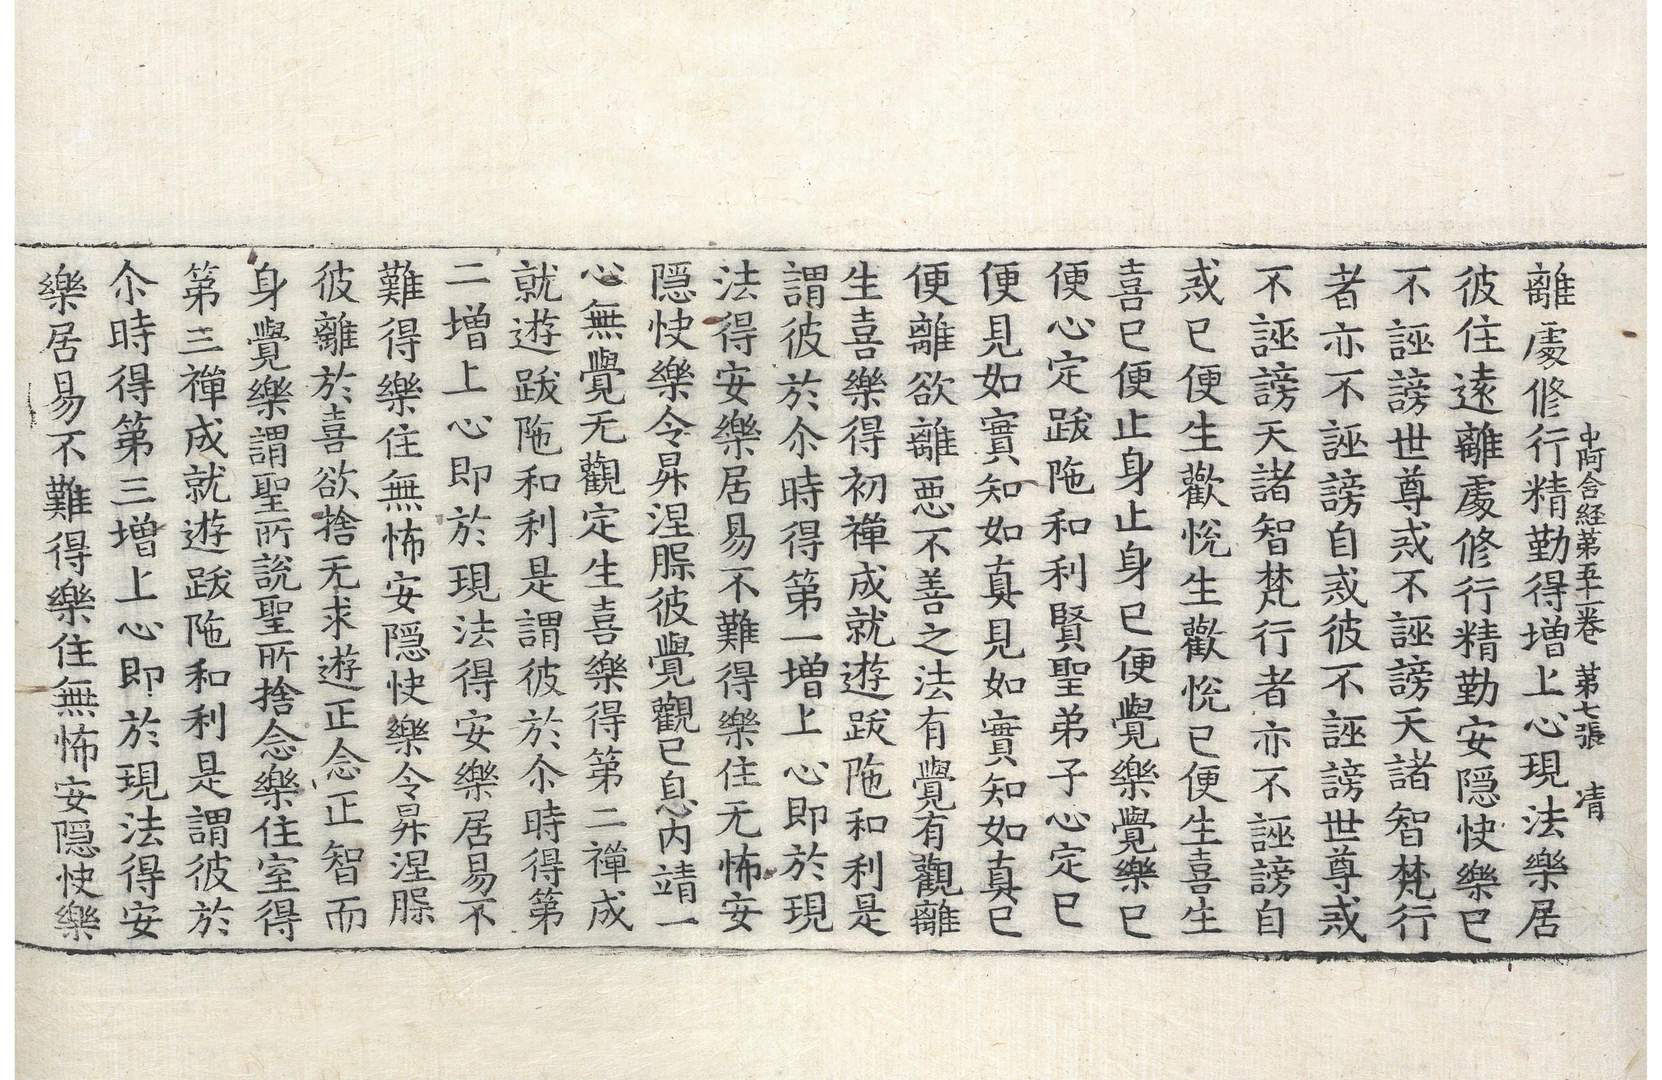 中阿含經第五十一卷 第七張 凊
離處修行精勤得增上心現法樂居
彼住遠離處修行精勤安隱快樂已
不誣謗世尊戒不誣謗天諸智梵行
者亦不誣謗自戒彼不誣謗世尊戒
不誣謗天諸智梵行者亦不誣謗自
戒已便生歡悅生歡悅已便生喜生
喜已便止身止身已便覺樂覺樂已
便心定跋陁和利賢聖弟子心定已
便見如實知如真見如實知如真已
便離欲離惡不善之法有覺有觀離
生喜樂得初禪成就遊跋陁和利是
謂彼於尒時得第一增上心即於現
法得安樂居易不難得樂住无怖安
隱快樂令昇涅槃彼覺觀已息內靖一
心無覺无觀定生喜樂得第二禪成
就遊跋陁和利是謂彼於尒時得第
二增上心即於現法得安樂居易不
難得樂住無怖安隱快樂令昇涅槃
彼離於喜欲捨无求遊正念正智而
身覺樂謂聖所說聖所捨念樂住室得
第三禪成就遊跋陁和利是謂彼於
尒時得第三增上心即於現法得安
樂居易不難得樂住無怖安隱快樂